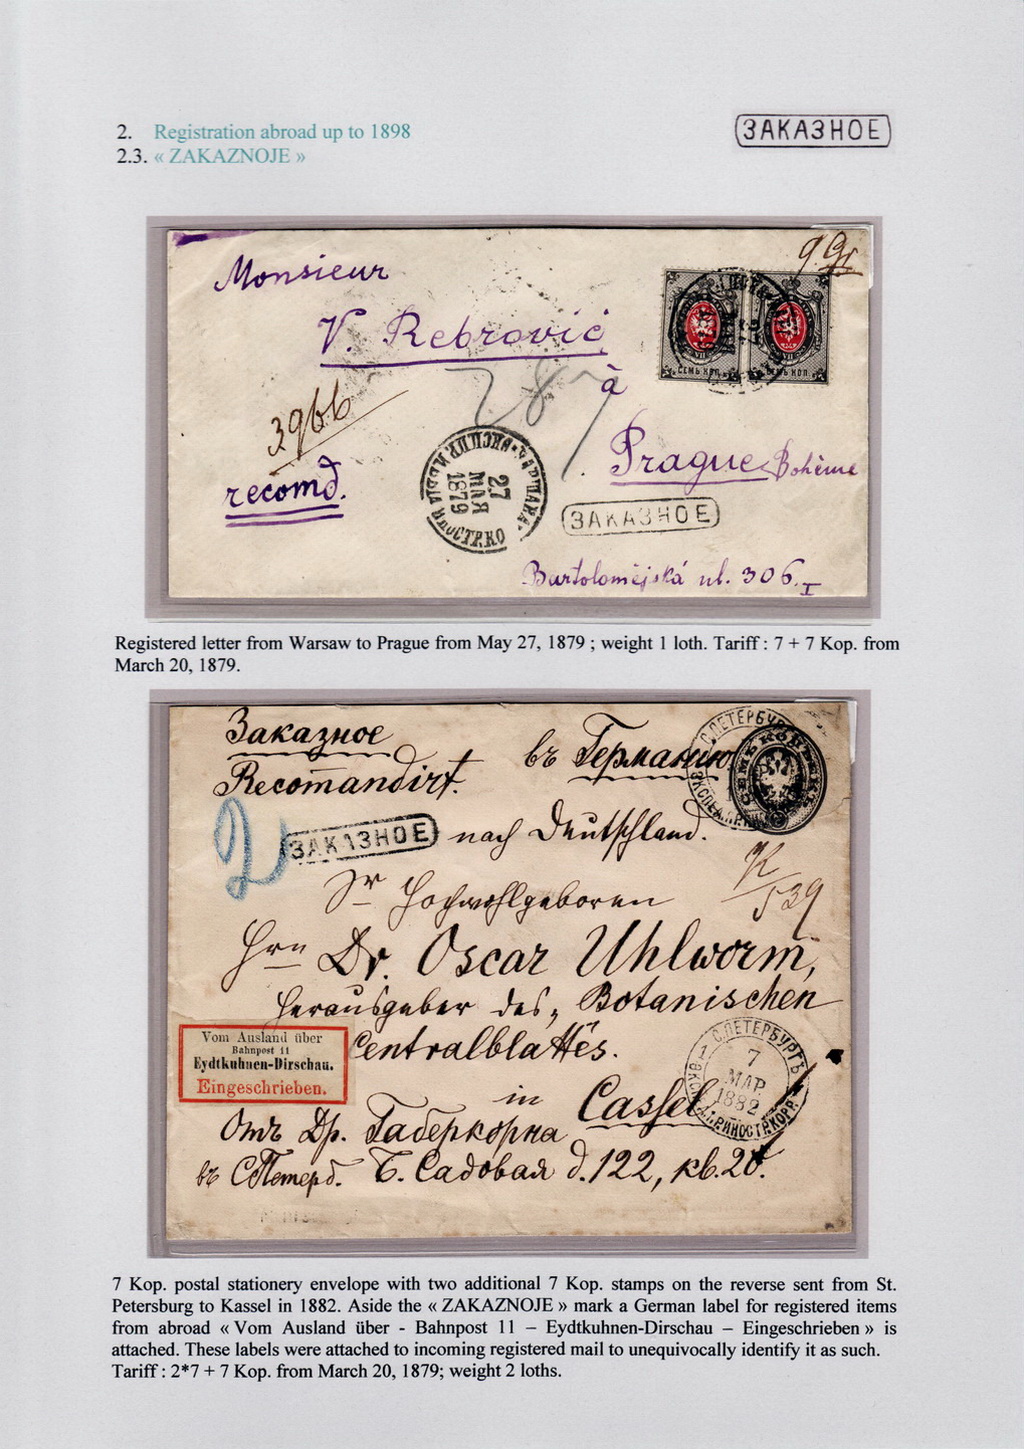 2. Registration abroad up to 1898
2.3. « ZAKAZNOJE »
ЗАКАЗНОЕ
Monsieur
V. Rebrović
à
Prague Bohême
Bartolomějská ul. 306. I
3966
recomd.
287
СЕМЬ КОП. СЕМЬ КОП.
27
МАЯ
1879
ЗАКАЗНОЕ
Registered letter from Warsaw to Prague from May 27, 1879 ; weight 1 loth. Tariff : 7 + 7 Kop. from
March 20, 1879.
Заказное
въ Германию
Recomandirt.
ЗАКАЗНОЕ
nach Deutschland.
2
Sr Hochwohlgeboren
Hrn Dr. Oscar Uhlworm,
Herausgeber des „Botanischen
Centralblattes.
in Cassel
Vom Ausland über
Bahnpost 11
Eydtkuhnen-Dirschau.
Eingeschrieben.
С.ПЕТЕРБУРГЪ
7
МАР.
1882
Отъ Др. Габеркорна
въ С.Петерб. Б. Садовая д. 122, кв. 20.
7 Kop. postal stationery envelope with two additional 7 Kop. stamps on the reverse sent from St.
Petersburg to Kassel in 1882. Aside the « ZAKAZNOJE » mark a German label for registered items
from abroad « Vom Ausland über - Bahnpost 11 – Eydtkuhnen-Dirschau – Eingeschrieben » is
attached. These labels were attached to incoming registered mail to unequivocally identify it as such.
Tariff : 2*7 + 7 Kop. from March 20, 1879; weight 2 loths.